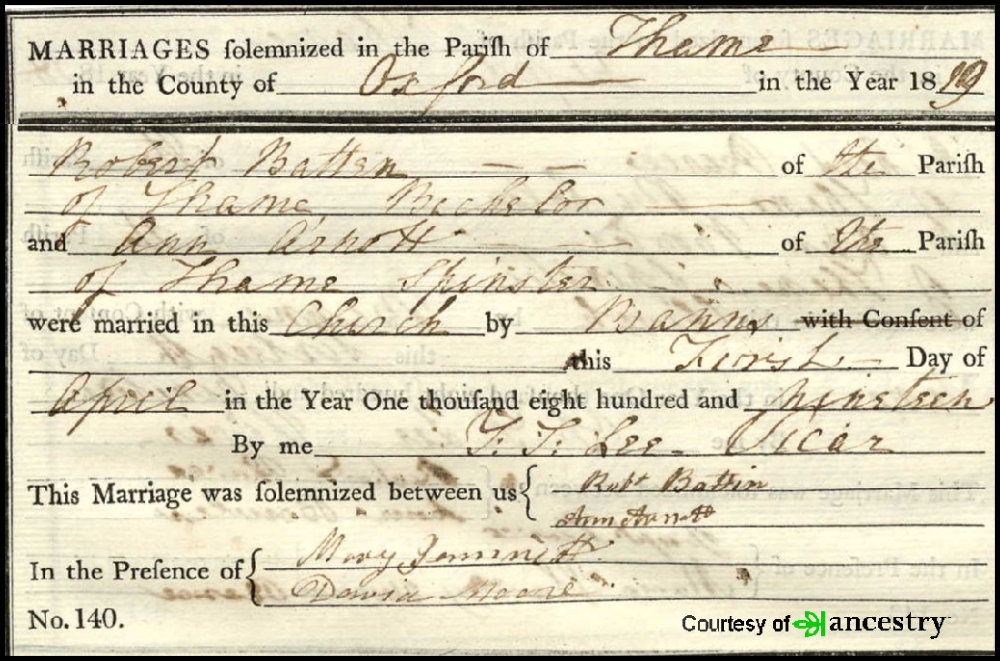 MARRIAGES ſolemnized in the Pariſh of Thame
in the County of Oxford in the Year 1819
Robert Batten of the Pariſh
of Thame Bachelor
and Ann Arnott of the Pariſh
of Thame Spinster
were married in this Church by Banns with Conſent of
this First Day of
April in the Year One thouſand eight hundred and Nineteen
By me T. T. Lee Vicar
This Marriage was ſolemnized between us Robt Battin
Ann Arnott
In the Preſence of Mary
David Moore
No. 140.
Courtesy of ancestry